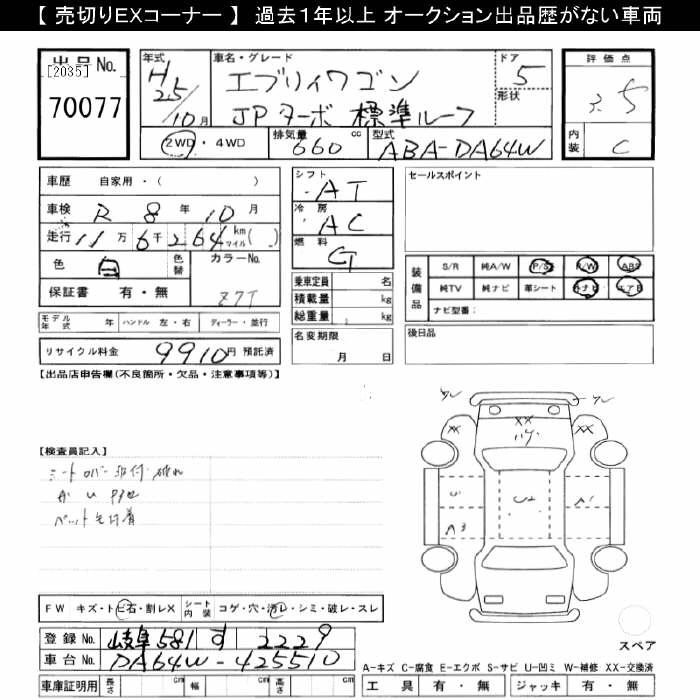 【 売切りEXコーナー 】 過去１年以上 オークション出品歴がない車両
出品No. [2035] 70077
年式 H25/10月
車名・グレード エブリィワゴン JPターボ 標準ルーフ
ドア 5 形状
評価点 3.5
内装 C
2WD・4WD 排気量 660 cc 型式 ABA-DA64W
車歴 自家用・( )
車検 R 8 年 10 月
走行 11 万 6 千 264 km マイル ( )
色 白 色替 カラーNo. Z7T
保証書 有・無
モデル年式 年 ハンドル 左・右 ディーラー・並行
リサイクル料金 9910円 預託済
シフト AT
冷房 AC
燃料 G
乗車定員 名
積載量 kg
総重量 kg
名変期限 月 日
セールスポイント
装備品 S/R 純A/W P/S P/W ABS
純TV 純ナビ 革シート 外ナビ エアB
ナビ型番:
後日品
【出品店申告欄(不良箇所・欠品・注意事項等)】
【検査員記入】
シートカバー取付・破れ
ペット毛付着
ワレ ワレ
XX XX XX
ハゲ
U1 U2 A1
A3
FW キズ・トビ石・割レX シート内装 コゲ・穴・汚レ・シミ・破レ・スレ
登録No. 岐阜 581 す 2229
車台No. DA64W-425510
車庫証明用 長さ cm 幅 cm 高さ cm
スペア
A-キズ C-腐食 E-エクボ S-サビ U-凹ミ W-補修 XX-交換済
工具 有・無 ジャッキ 有・無